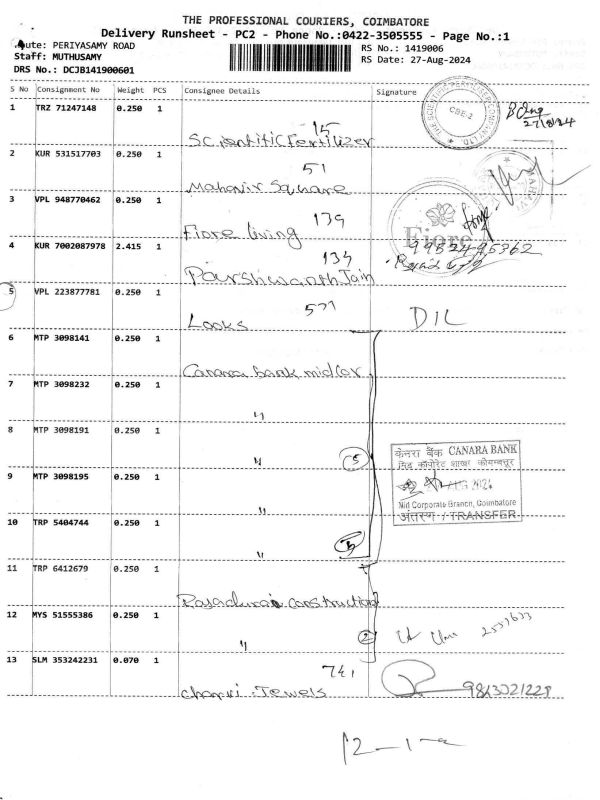 THE PROFESSIONAL COURIERS, COIMBATORE
Delivery Runsheet - PC2 - Phone No.:0422-3505555 - Page No.:1
Route: PERIYASAMY ROAD
Staff: MUTHUSAMY
DRS No.: DCJB141900601
RS No.: 1419006
RS Date: 27-Aug-2024
S No Consignment No Weight PCS Consignee Details Signature
1 TRZ 71247148 0.250 1
15
Scientific Fertilizer
CBE-2
2 KUR 531517703 0.250 1
51
Mahavir Square
3 VPL 948770462 0.250 1
139
Fiore living
Fiore
4 KUR 7002087978 2.415 1
134
Parshwanath Jain
9952495362
5 VPL 223877781 0.250 1
Looks
DIL
6 MTP 3098141 0.250 1
Canara bank midcor
7 MTP 3098232 0.250 1
"
8 MTP 3098191 0.250 1
"
5
केनरा बैंक CANARA BANK
मिड कॉर्पोरेट शाखा कोयम्बत्तूर
2024
Mid Corporate Branch, Coimbatore
अंतरण / TRANSFER
9 MTP 3098195 0.250 1
"
10 TRP 5404744 0.250 1
"
5
11 TRP 6412679 0.250 1
Rajadurai construction
12 MYS 51555386 0.250 1
"
2
13 SLM 353242231 0.070 1
741
Jewels